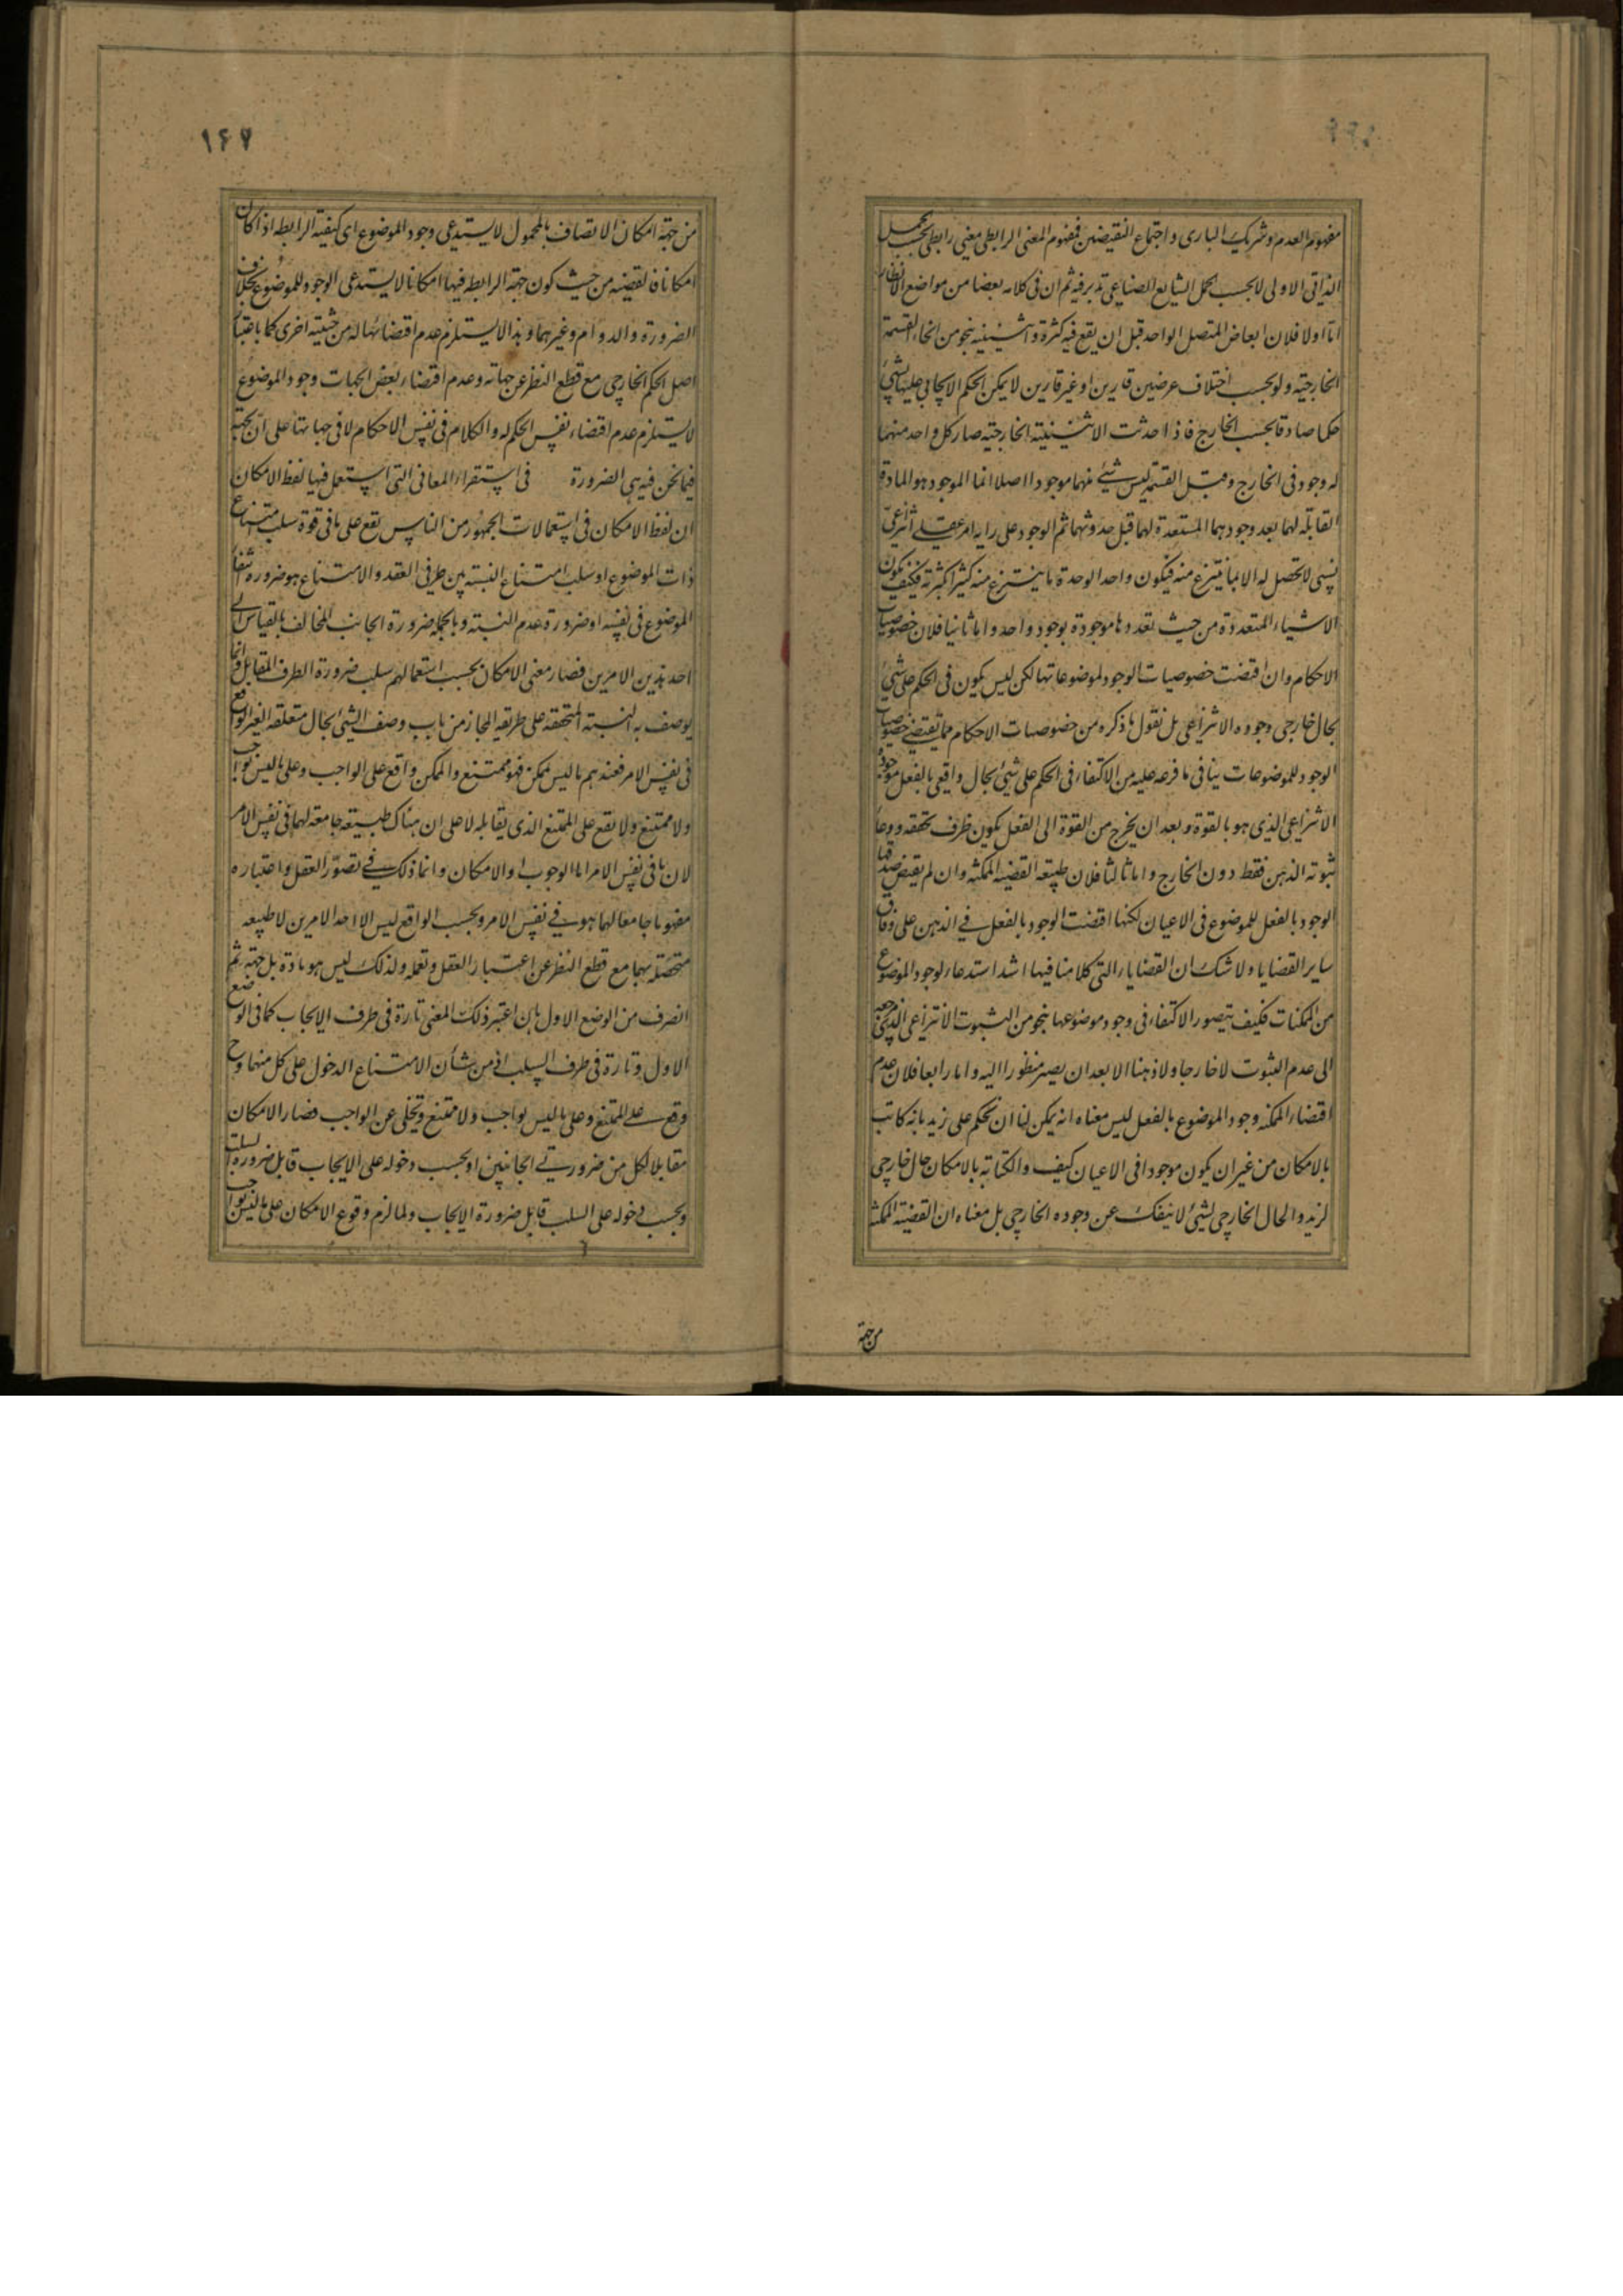 مفهوم العدم وشريك البارى واجتماع النقيضين فمفهوم المعنى الرابطى معنى رابطى بحسب الحمل
الذاتى الاولى لا بحسب الحمل الشايع الصناعى تدبر فيه ثم ان فى كلامه بعضا من مواضع الانظار
اما اولا فلان ابعاض المتصل الواحد قبل ان يقع فيه كثرة واثنينية بنحو من انحاء القسمة
الخارجية ولو بحسب اختلاف عرضين قارين او غير قارين لا يمكن الحكم الايجابى عليها بشئ
حكما صادقا بحسب الخارج فاذا حدثت الاثنينية الخارجية صار كل واحد منهما
له وجود فى الخارج وقبل القسمة ليس شئ منهما موجودا اصلا انما الموجود هو المادة
القابلة لهما بعد وجودهما المستعدة لهما قبل حدوثهما ثم الوجود على رايه امر عقلى انتزاعى
نسبى لا تحصل له الا بما ينتزع منه فيكون واحدا لوحدة ما ينتزع منه كثيرا لكثرته فكيف يكون
الاشياء المتعددة من حيث تعددها موجودة بوجود واحد واما ثانيا فلان خصوصيات
الاحكام وان اقتضت خصوصيات الوجود لموضوعاتها لكن ليس يكون فى الحكم على شئ
بحال خارجى وجوده الانتزاعى بل نقول ما ذكره من خصوصيات الاحكام مما يقتضى خصوصيات
الوجود للموضوعات ينافى ما فرعه عليه من الاكتفاء فى الحكم على شئ بحال واقعى بالفعل بوجوده
الانتزاعى الذى هو بالقوة وبعد ان يخرج من القوة الى الفعل يكون ظرف تحققه ووعاء
ثبوته الذهن فقط دون الخارج واما ثالثا فلان طبيعة القضية الممكنة وان لم يقتض صدقها
الوجود بالفعل للموضوع فى الاعيان لكنها اقتضت الوجود بالفعل فى الذهن على وفاق
ساير القضايا ولا شك ان القضايا التى كلامنا فيها اشد استدعاء لوجود الموضوع
من الممكنات فكيف يتصور الاكتفاء فى وجود موضوعها بنحو من الثبوت الانتزاعى الذى مرجعه
الى عدم الثبوت لا خارجا ولا ذهنا الا بعد ان يصير منظورا اليه واما رابعا فلان عدم
اقتضاء الممكنة وجود الموضوع بالفعل ليس معناه انه يمكن لنا ان نحكم على زيد بانه كاتب
بالامكان من غير ان يكون موجودا فى الاعيان كيف والكتابة بالامكان حال خارجى
لزيد والحال الخارجى لشئ لا ينفك عن وجوده الخارجى بل معناه ان القضية الممكنة
من جهة
١٤٧
من جهة امكان الاتصاف بالمحمول لا يستدعى وجود الموضوع اى كيفية الرابطه اذا كان
امكانا فالقضيه من حيث كون جهة الرابطه فيها امكانا لا يستدعى الوجود للموضوع بخلاف
الضرورة والدوام وغيرهما وهذا لا يستلزم عدم اقتضائها له من حيثية اخرى كما باعتبار
اصل الحكم الخارجى مع قطع النظر عن جهاته وعدم اقتضاء بعض الجهات وجود الموضوع
لا يستلزم عدم اقتضاء نفس الحكم له والكلام فى نفس الاحكام لا فى جهاتها على ان الجهة
فيما نحن فيه هى الضرورة فى استقراء المعانى التى استعمل فيها لفظ الامكان
ان لفظ الامكان فى استعمالات الجمهور من الناس يقع على ما فى قوة سلب امتناع
ذات الموضوع او سلب امتناع النسبة بين طرفى العقد والامتناع هو ضرورة انتفاء
الموضوع فى نفسه او ضرورة عدم النسبة وبالجملة ضرورة الجانب المخالف بالقياس الى
احد هذين الامرين فصار معنى الامكان بحسب استعمالهم سلب ضرورة الطرف المقابل وانما
يوصف به النسبة المتحققه على طريقه المجاز من باب وصف الشئ بحال متعلقه الغير الواقع
فى نفس الامر فعندهم ما ليس بممكن فهو ممتنع والممكن واقع على الواجب وعلى ما ليس بواجب
ولا ممتنع ولا يقع على الممتنع الذى يقابله لا على ان هناك طبيعة جامعة لهما فى نفس الامر
لان ما فى نفس الامر اما الوجوب او الامكان وانما ذلك فى تصور العقل واعتباره
مفهوما جامعا لهما هو فى نفس الامر وبحسب الواقع ليس الا احد الامرين لا طبيعه
متحصلة بهما مع قطع النظر عن اعتبار العقل وتعمله ولذلك ليس هو مادة بل جهة ثم
انصرف من الوضع الاول بان اعتبر ذلك المعنى تارة فى طرف الايجاب كما فى الوضع
الاول وتارة فى طرف السلب اذ من شأن الامتناع الدخول على كل منهما وح
وقع على الممتنع وعلى ما ليس بواجب ولا ممتنع وتخلى عن الواجب فصار الامكان
مقابلا لكل من ضرورتى الجانبين اذ بحسب دخوله على الايجاب قابل ضرورة السلب
وبحسب دخوله على السلب قابل ضرورة الايجاب ولما لزم وقوع الامكان على ما ليس بواجب